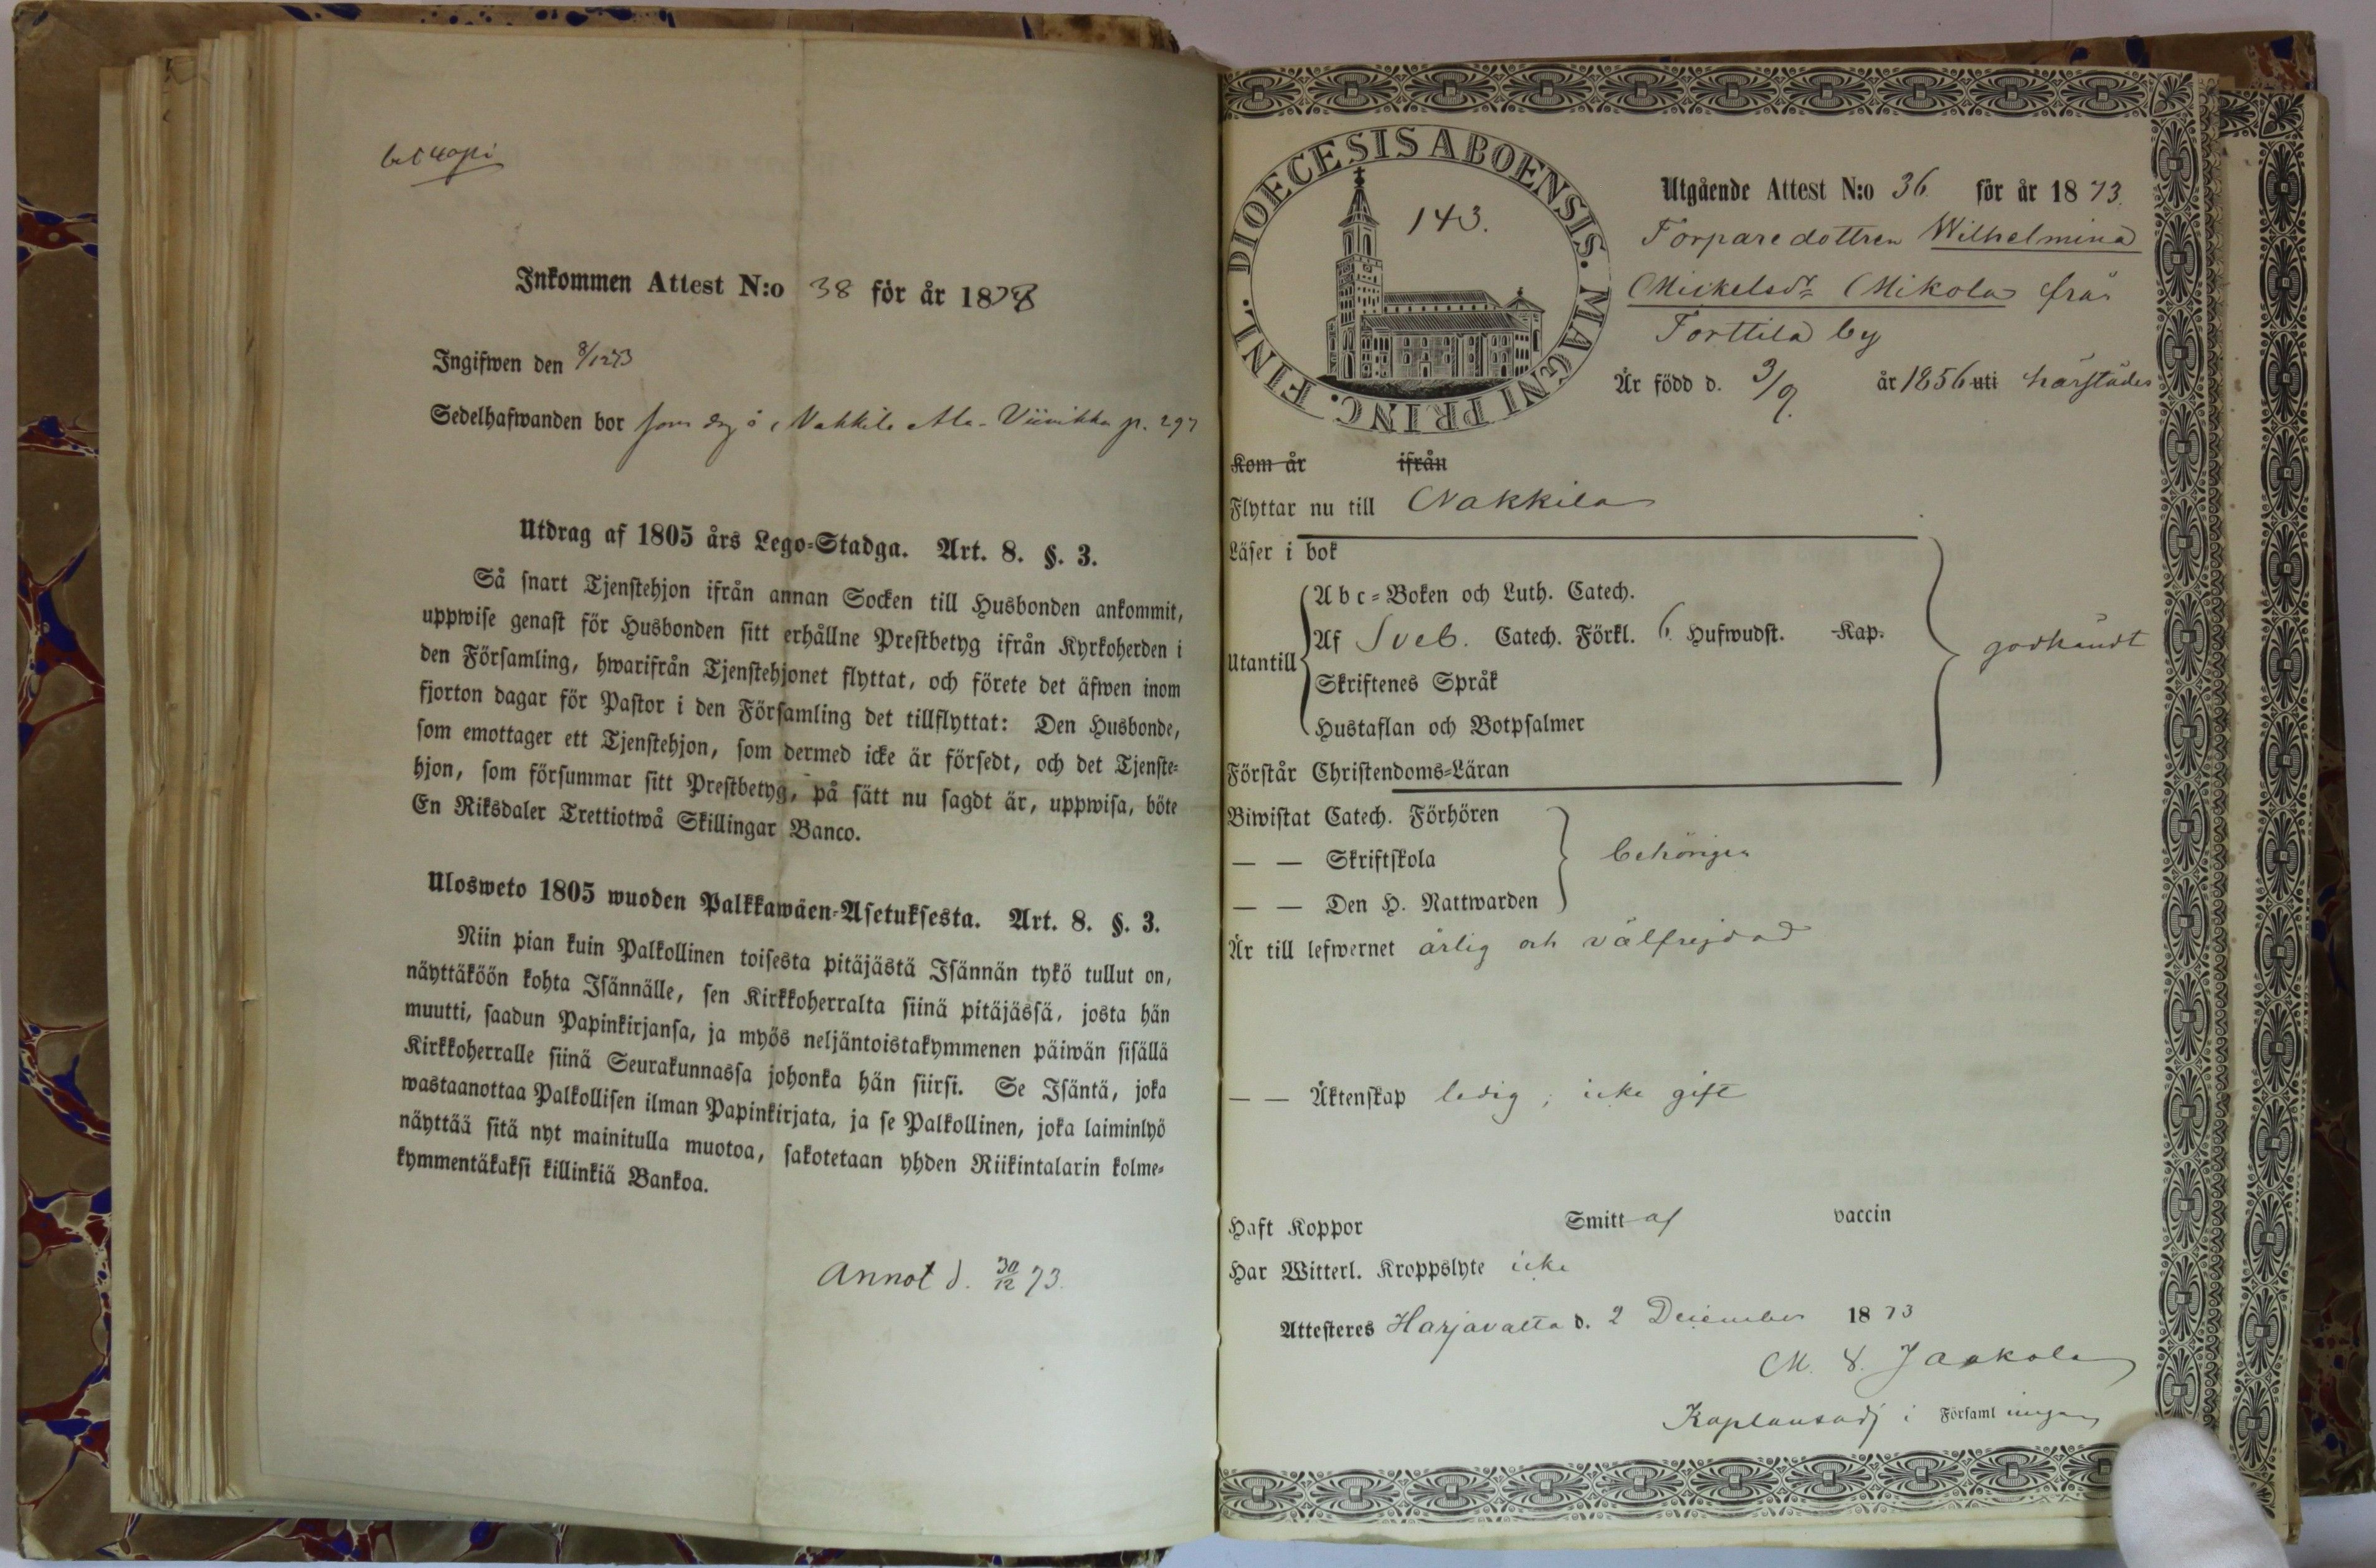 Inkommen Attest N:o 38 för år 1873
Ingifwen den 8/12 73
Sedelhafwanden bor som dräng i Nakkila Ala-Viinikka p. 297
Utdrag af 1805 års Lego-Stadga. Art. 8. §. 3.
Så snart Tjenstehjon ifrån annan Socken till Husbonden ankommit,
uppwise genast för Husbonden sitt erhållne Prestbetyg ifrån Kyrkoherden i
den Församling, hwarifrån Tjenstehjonet flyttat, och förete det äfwen inom
fjorton dagar för Pastor i den Församling det tillflyttat: Den Husbonde,
som emottager ett Tjenstehjon, som dermed icke är försedt, och det Tjenste-
hjon, som försummar sitt Prestbetyg, på sätt nu sagdt är, uppwisa, böte
En Riksdaler Trettiotwå Skillingar Banco.
Ulosweto 1805 wuoden Palkkawäen-Asetuksesta. Art. 8. §. 3.
Niin pian kuin Palkollinen toisesta pitäjästä Isännän tykö tullut on,
näyttäköön kohta Isännälle, sen Kirkkoherralta siinä pitäjässä, josta hän
muutti, saadun Papinkirjansa, ja myös neljäntoistakymmenen päiwän sisällä
Kirkkoherralle siinä Seurakunnassa johonka hän siirsi. Se Isäntä, joka
wastaanottaa Palkollisen ilman Papinkirjata, ja se Palkollinen, joka laiminlyö
näyttää sitä nyt mainitulla muotoa, sakotetaan yhden Riikintalarin kolme-
kymmentäkaksi killinkiä Bankoa.
Annot d. 30/12 73.
DIOECESIS ABOENSIS. MAGNI PRINC. FINL.
143.
Utgående Attest N:o 36. för år 1873.
Torparedottren Wilhelmina
Mickelsdr Mikola från
Torttila by
Är född d. 3/9. år 1856 uti härstädes
Kom år ifrån
Flyttar nu till Nakkila
Läser i bok
Utantill
Abc-Boken och Luth. Catech.
Af Sveb. Catech. Förkl. 6 Hufwudst. Kap.
Skriftenes Språk
Hustaflan och Botpsalmer
godkändt
Förstår Christendoms-Läran
Biwistat Catech. Förhören
— — Skriftskola
— — Den H. Nattwarden
behörigen
Är till lefwernet ärlig och välfrejdad
— — Äktenskap ledig, icke gift
Haft Koppor Smitt af vaccin
Har Witterl. Kroppslyte icke
Attesteres Harjavalta d. 2 December 1873
M. Jaakola
Kaplansadj i Församlingen